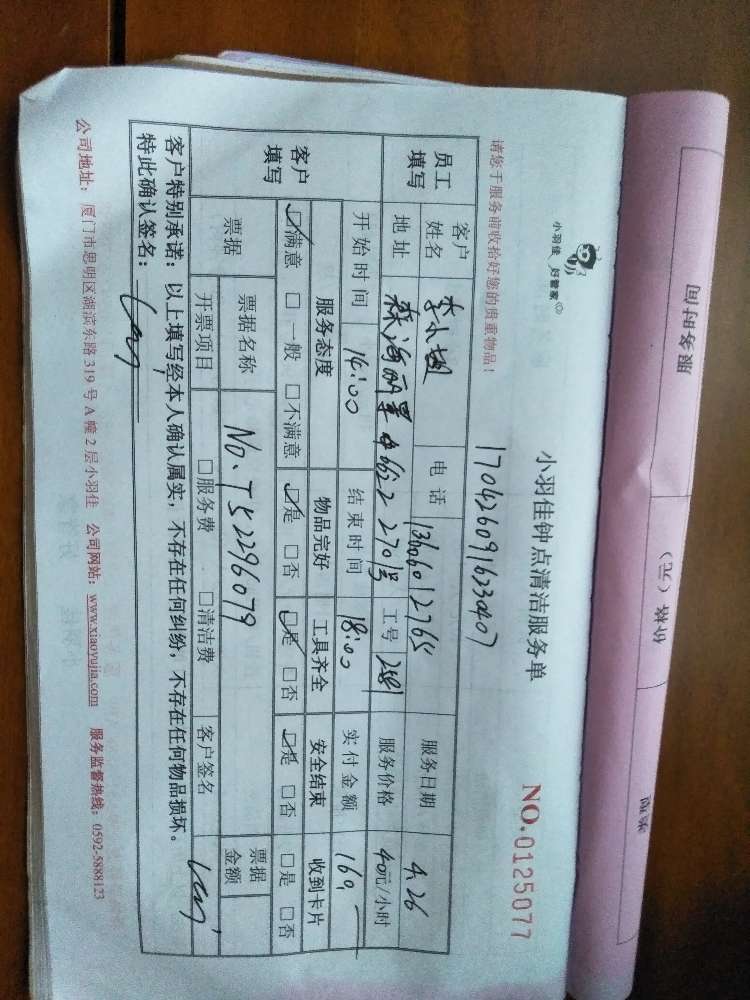 小羽佳 好管家
小羽佳钟点清洁服务单
NO.0125077
请您于服务前收拾好您的贵重物品！
17042609162330407
员工填写
客户姓名 李小姐 电话 13606012765 服务日期 4.26
地址 2701号 工号 2581 服务价格 40元/小时
开始时间 14:00 结束时间 18:00 实付金额 169
客户填写
服务态度 物品完好 工具齐全 安全结束 收到卡片
☑满意 □一般 □不满意 ☑是 □否 ☑是 □否 ☑是 □否 □是 □否
票据 票据名称 No.T52296079 票据金额
开票项目 □服务费 □清洁费 客户签名
客户特别承诺：以上填写经本人确认属实，不存在任何纠纷，不存在任何物品损坏。
特此确认签名：
公司地址：厦门市思明区湖滨东路319号A幢2层小羽佳 公司网站：www.xiaoyujia.com 服务监督热线：0592-5888123
服务时间
价格（元）